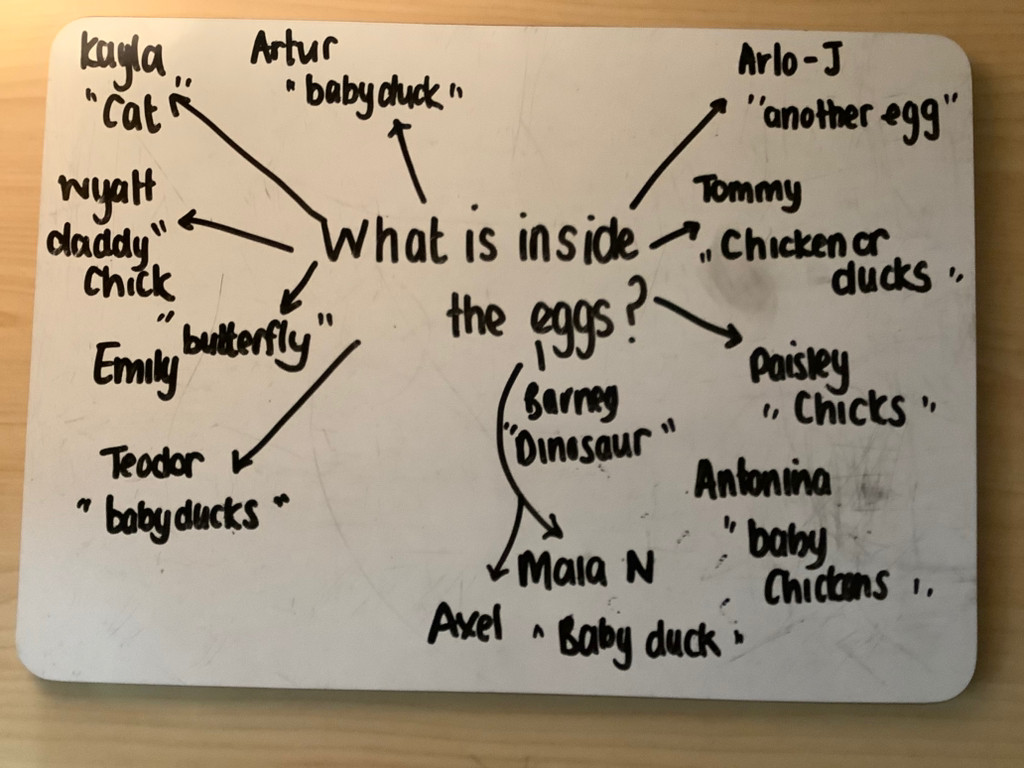 Kayla
"Cat"
Artur
"baby duck"
Arlo-J
"another egg"
Wyatt
daddy"
Chick
Tommy
"Chicken or
ducks"
What is inside
the eggs?
"butterfly"
Emily
Paisley
"Chicks"
Barney
"Dinosaur"
Teodor
"baby ducks"
Antonina
"baby
Chickens"
Maia N
Axel "Baby duck"